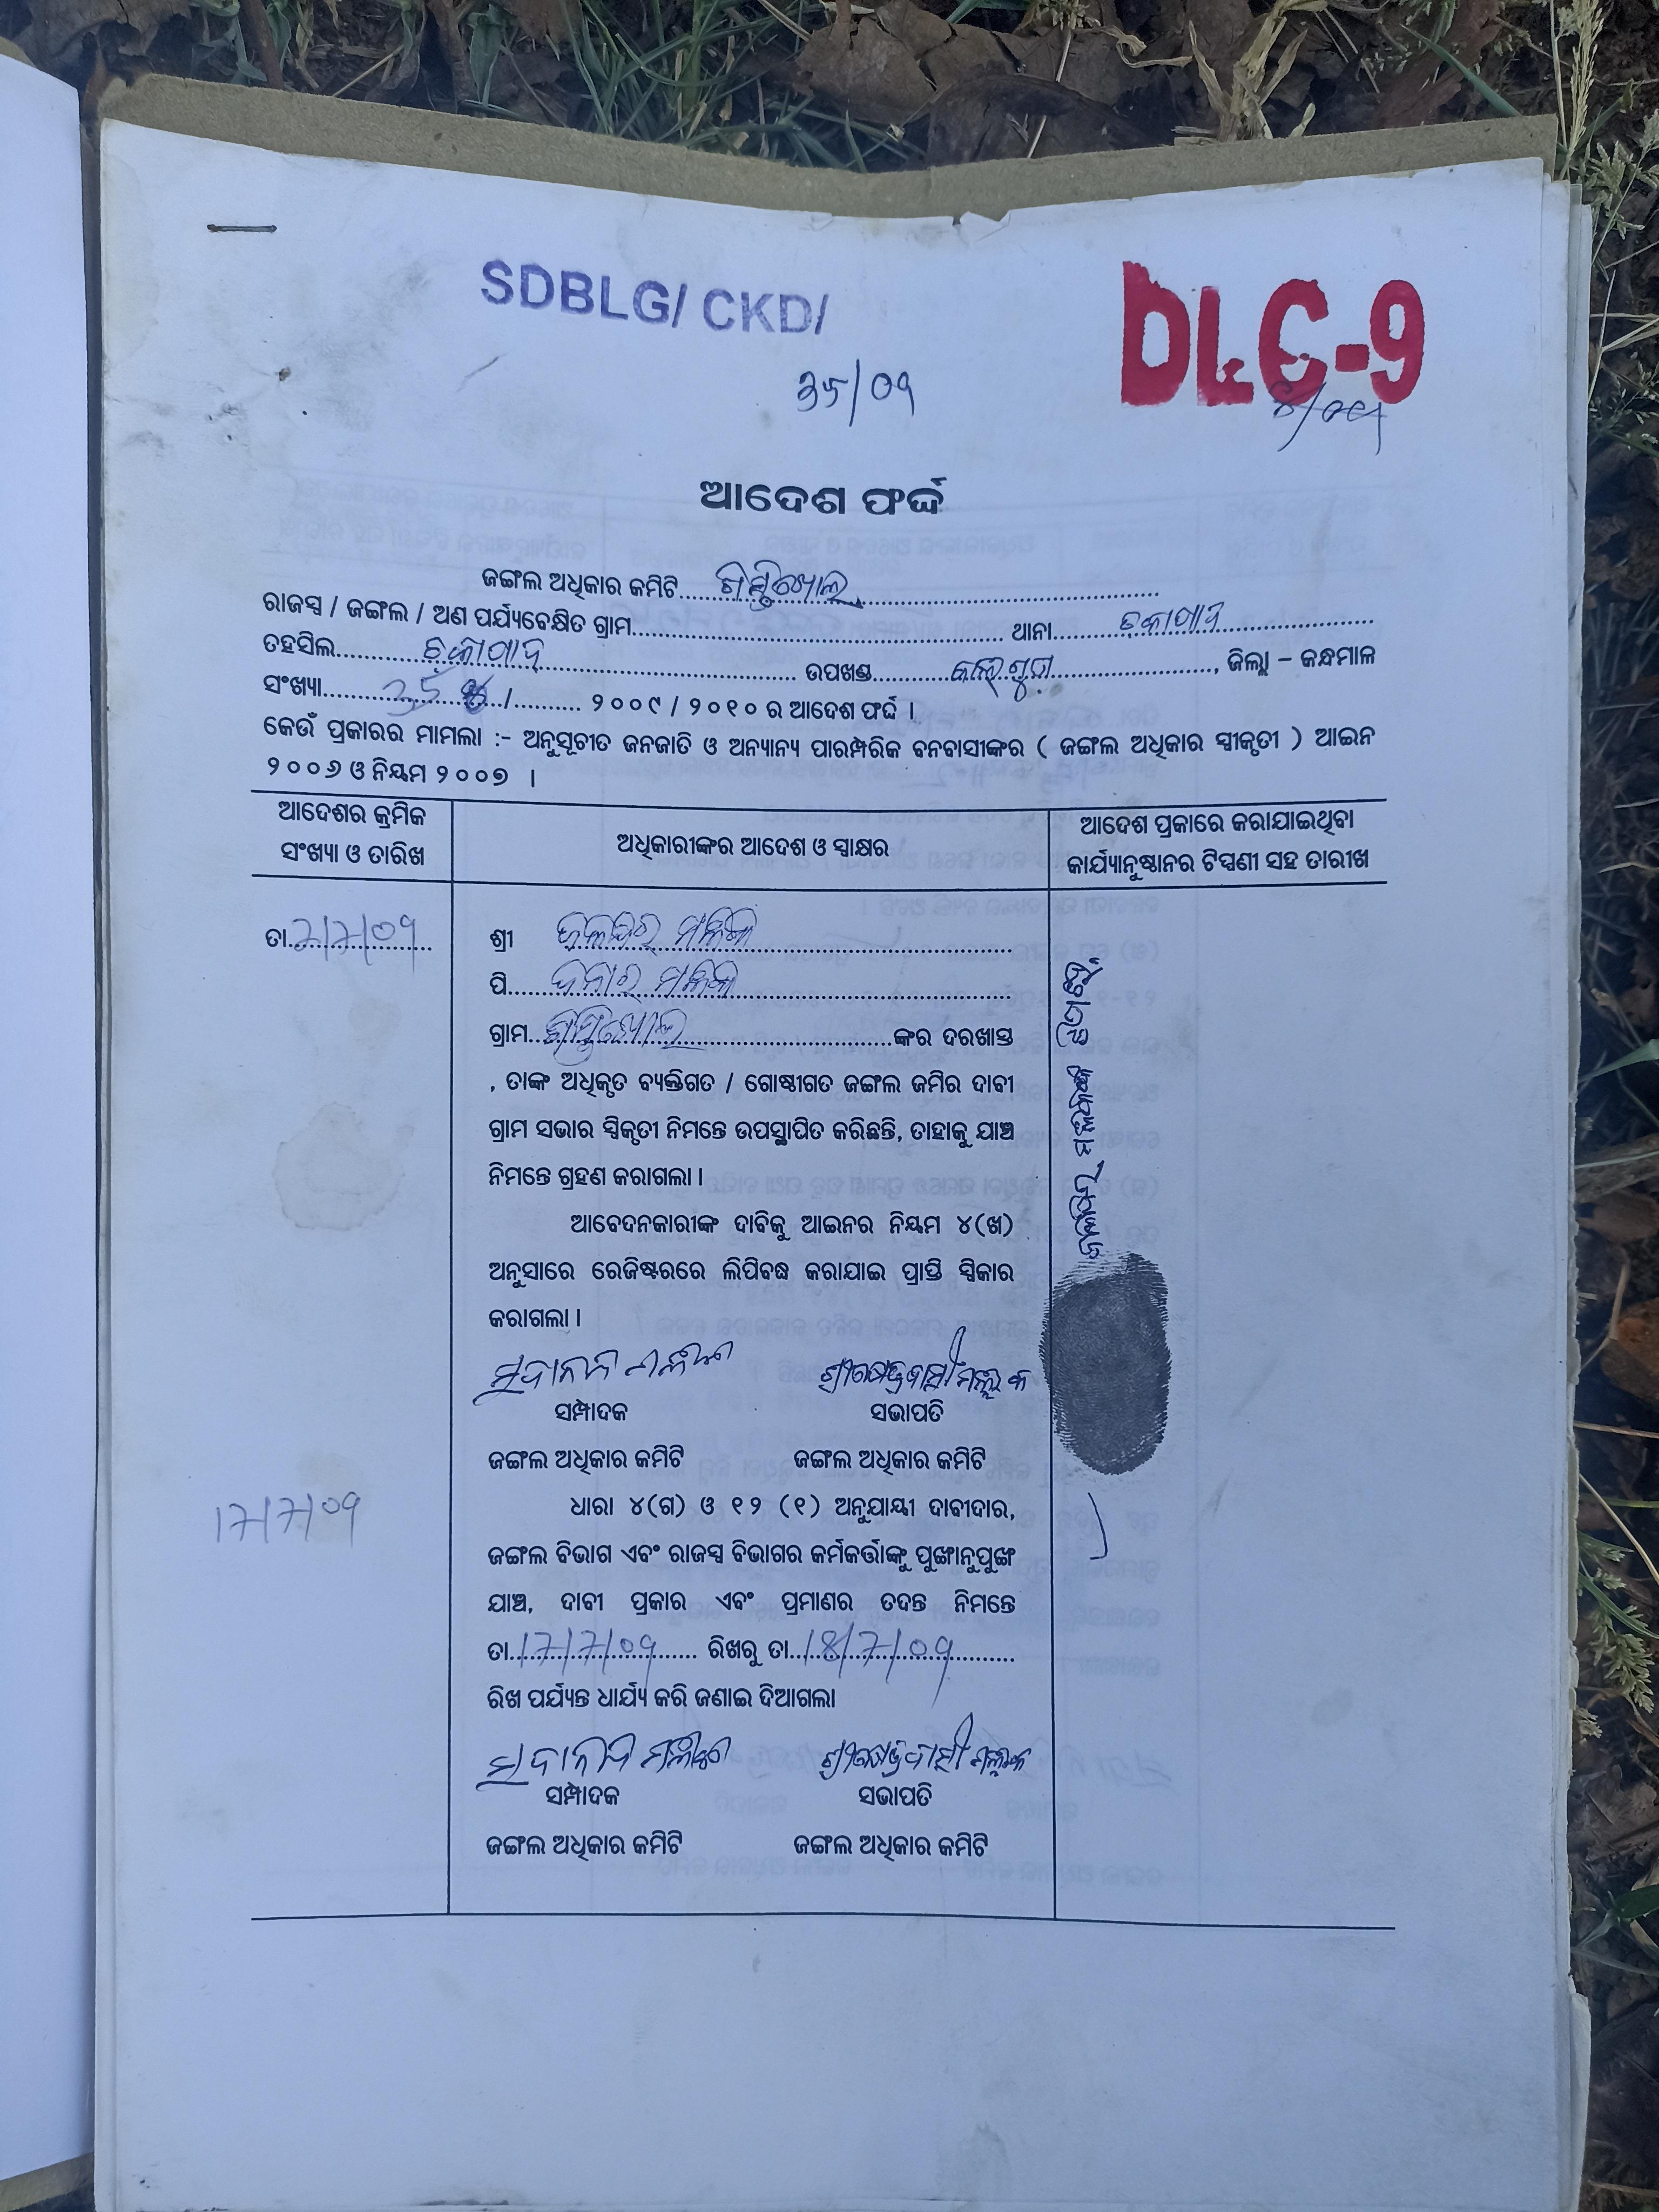 SDBLG/ CKD/
DLC-9
35/09
ଆଦେଶ ଫର୍ଦ୍ଦ
ଜଙ୍ଗଲ ଅଧିକାର କମିଟି
ରାଜସ୍ୱ / ଜଙ୍ଗଲ / ଅଣ ପର୍ଯ୍ୟବେକ୍ଷିତ ଗ୍ରାମ ଥାନା ଚକାପାଦ
ତହସିଲ ଚକାପାଦ ଉପଖଣ୍ଡ , ଜିଲ୍ଲା – କନ୍ଧମାଳ
ସଂଖ୍ୟା / ୨୦୦୯ / ୨୦୧୦ ର ଆଦେଶ ଫର୍ଦ୍ଦ ।
କେଉଁ ପ୍ରକାରର ମାମଲା :- ଅନୁସୂଚୀତ ଜନଜାତି ଓ ଅନ୍ୟାନ୍ୟ ପାରମ୍ପରିକ ବନବାସୀଙ୍କର ( ଜଙ୍ଗଲ ଅଧିକାର ସ୍ୱୀକୃତୀ ) ଆଇନ
୨୦୦୬ ଓ ନିୟମ ୨୦୦୭ ।
ଆଦେଶର କ୍ରମିକ
ସଂଖ୍ୟା ଓ ତାରିଖ
ଅଧିକାରୀଙ୍କର ଆଦେଶ ଓ ସ୍ୱାକ୍ଷର
ଆଦେଶ ପ୍ରକାରେ କରାଯାଇଥିବା
କାର୍ଯ୍ୟାନୁଷ୍ଠାନର ଟିପ୍ପଣୀ ସହ ତାରୀଖ
ତା. 2/7/09
ଶ୍ରୀ ଜଳନ୍ଧର ମଳିକ
ପି. ମଳିକ
ଗ୍ରାମ ଙ୍କର ଦରଖାସ୍ତ
, ତାଙ୍କ ଅଧିକୃତ ବ୍ୟକ୍ତିଗତ / ଗୋଷ୍ଠୀଗତ ଜଙ୍ଗଲ ଜମିର ଦାବୀ
ଗ୍ରାମ ସଭାର ସ୍ୱିକୃତୀ ନିମନ୍ତେ ଉପସ୍ଥାପିତ କରିଛନ୍ତି, ତାହାକୁ ଯାଞ୍ଚ
ନିମନ୍ତେ ଗ୍ରହଣ କରାଗଲା ।
ଆବେଦନକାରୀଙ୍କ ଦାବିକୁ ଆଇନର ନିୟମ ୪(ଖ)
ଅନୁସାରେ ରେଜିଷ୍ଟରରେ ଲିପିବଦ୍ଧ କରାଯାଇ ପ୍ରାପ୍ତି ସ୍ୱିକାର
କରାଗଲା ।
ସମ୍ପାଦକ ସଭାପତି
ଜଙ୍ଗଲ ଅଧିକାର କମିଟି ଜଙ୍ଗଲ ଅଧିକାର କମିଟି
17/7/09
ଧାରା ୪(ଗ) ଓ ୧୨ (୧) ଅନୁଯାୟୀ ଦାବୀଦାର,
ଜଙ୍ଗଲ ବିଭାଗ ଏବଂ ରାଜସ୍ୱ ବିଭାଗର କର୍ମକର୍ତ୍ତାଙ୍କୁ ପୁଙ୍ଖାନୁପୁଙ୍ଖ
ଯାଞ୍ଚ, ଦାବୀ ପ୍ରକାର ଏବଂ ପ୍ରମାଣର ତଦନ୍ତ ନିମନ୍ତେ
ତା. 17/7/09 ରିଖରୁ ତା. 18/7/09
ରିଖ ପର୍ଯ୍ୟନ୍ତ ଧାର୍ଯ୍ୟ କରି ଜଣାଇ ଦିଆଗଲା
ସମ୍ପାଦକ ସଭାପତି
ଜଙ୍ଗଲ ଅଧିକାର କମିଟି ଜଙ୍ଗଲ ଅଧିକାର କମିଟି